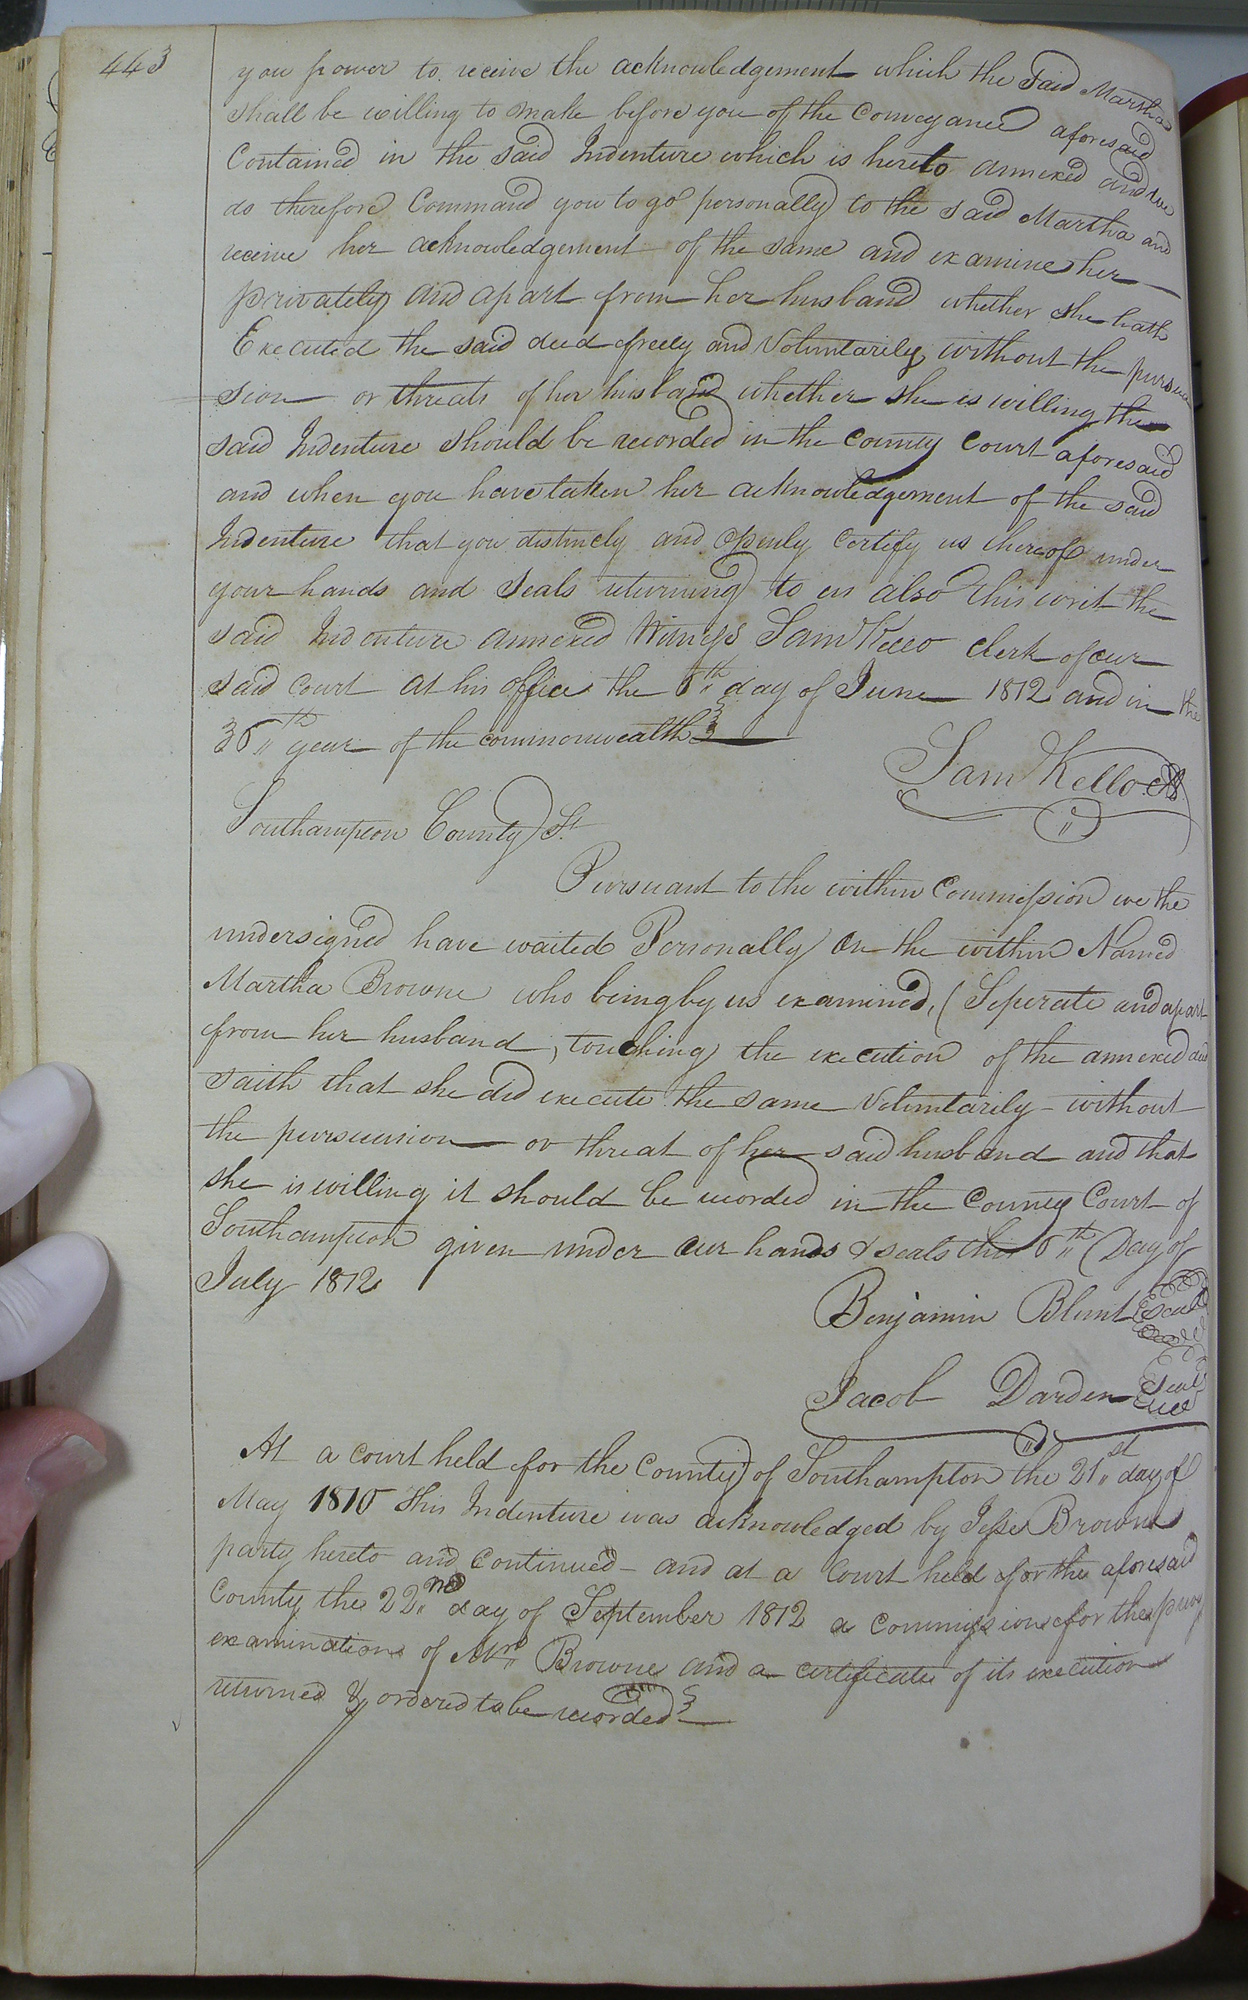 443
you power to receive the acknowledgement which the said Martha
shall be willing to make before you of the Conveyance aforesaid
Contained in the said Indenture which is hereto annexed and we
do therefore Command you to go personally to the said Martha and
receive her acknowledgement of the same and examine her
privately and apart from her husband whether she hath
Executed the said deed freely and Voluntarily without the persua
sion or threats of her husband whether she is willing the
said Indenture should be recorded in the County Court aforesaid
and when you have taken her acknowledgement of the said
Indenture that you distinctly and Openly Certify us thereof under
your hands and Seals returning to us also this writ the
said Indenture annexed Witness Sam Kello Clerk of our
said Court at his office the 6th day of June 1812 and in the
36th year of the commonwealth
Sam Kello
Southampton County St
Pursuant to the within Commission we the
undersigned have waited Personally on the within Named
Martha Browne who being by us examined, (Seperate and apart
from her husband, touching the execution of the annexed deed
saith that she did execute the same Voluntarily without
the pursuasion or threat of her said husband and that
she is willing it should be recorded in the County Court of
Southampton given under our hands & seals this 6th Day of
July 1812
Benjamin Blunt Seal
Jacob Darden Seal
At a court held for the County of Southampton the 21st day of
May 1810 This Indenture was acknowledged by Jesse Browne
party hereto and Continued - and at a Court held for the aforesaid
County the 22nd day of September 1812 a commission for the privy
examination of Mrs Browne and a certificate of its execution
returned & ordered to be recorded